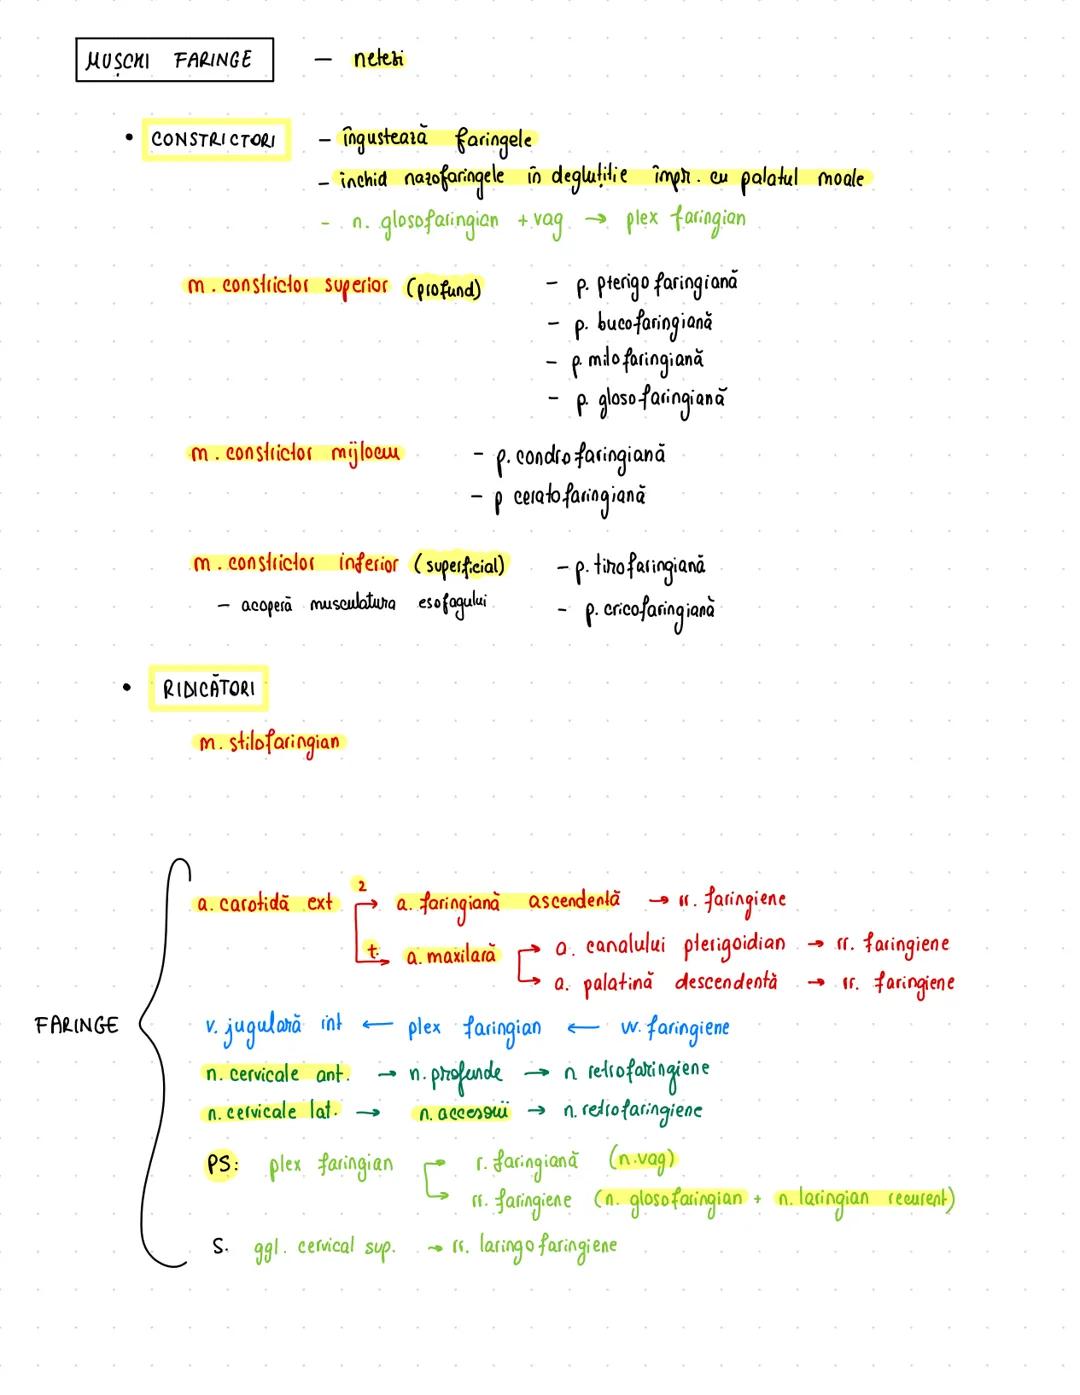 MUȘCHI FARINGE - netezi
• CONSTRICTORI - îngustează faringele
- închid nazofaringele în deglutiție împr. cu palatul moale
- n. glosofaringian + vag → plex faringian
m. constrictor superior (profund) - p. pterigofaringiană
- p. bucofaringiană
- p. milofaringiană
- p. glosofaringiană
m. constrictor mijlociu - p. condrofaringiană
- p ceratofaringiană
m. constrictor inferior (superficial) - p. tirofaringiană
- acoperă musculatura esofagului - p. cricofaringiană
• RIDICĂTORI
m. stilofaringian
a. carotidă ext 2 → a. faringiană ascendentă → rr. faringiene
t. → a. maxilară → a. canalului pterigoidian → rr. faringiene
→ a. palatină descendentă → rr. faringiene
FARINGE v. jugulară int ← plex faringian ← vv. faringiene
n. cervicale ant. → n. profunde → n retrofaringiene
n. cervicale lat. → n. accesorii → n. retrofaringiene
PS: plex faringian → r. faringiană (n. vag)
→ rr. faringiene (n. glosofaringian + n. laringian recurent)
S. ggl. cervical sup. → rr. laringofaringiene